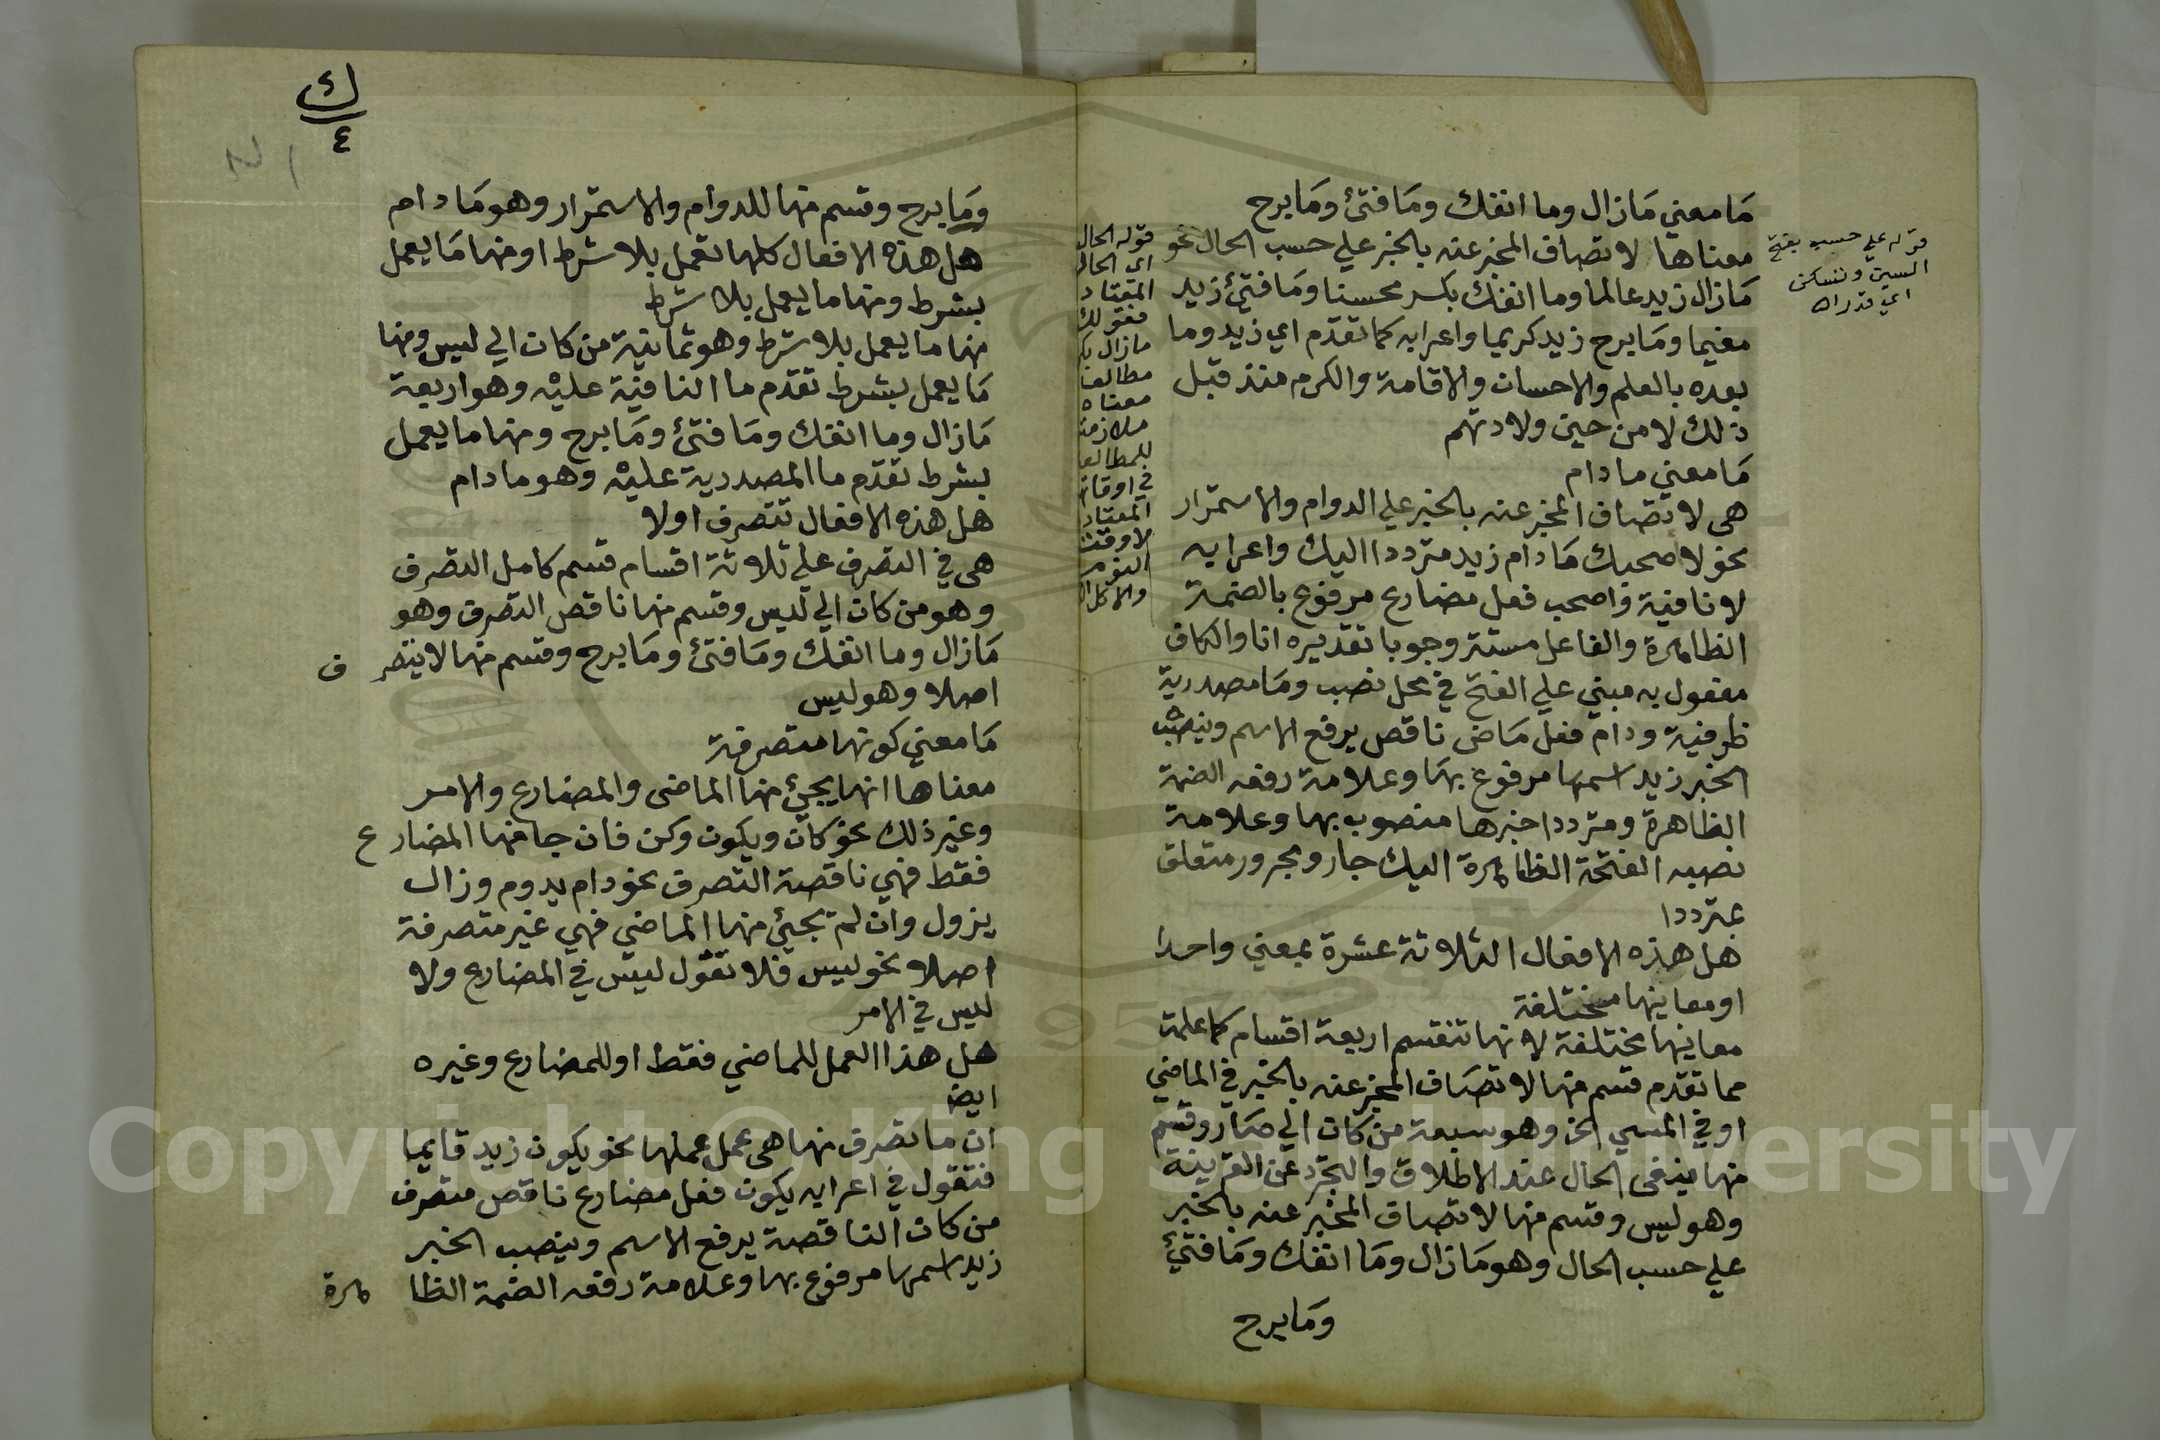 مَا معني مَا زال وما انفك ومَا فتئ ومَا برح
معناها لاتصاف المخبر عنه بالخبر علي حسب الحال نحو
مَا زال زيد عالما وما انفك بكر محسنا ومَا فتئ زيد
مقيما ومَا برح زيد كريما واعرابه كما تقدّم اي زيد وما
بعده بالعلم والاحسان والاقامة والكرم منذ قبل
ذلك لا من حين ولادتهم
مَا معني ما دام
هى لاتصاف المخبر عنه بالخبر علي الدوام والاستمرار
نحو لا اصحبك مَا دام زيد مترددا اليك واعرابه
لا نافية واصحب فعل مضارع مرفوع بالضمة
الظاهرة والفاعل مستتر وجوبا تقديره انا والكاف
مفعول به مبني علي الفتح في محل نصب ومَا مصدرية
ظرفية ودام فعل مَاض ناقص يرفع الاسم وينصب
الخبر زيد اسمها مرفوع بها وعلامة رفعه الضمة
الظاهرة ومترددا خبرها منصوب بها وعلامة
نصبه الفتحة الظاهرة اليك جار ومجرور متعلق
بمترددا
هل هذه الافعال الثلاثة عشرة بمعني واحد
او معاينها مختلفة
معاينها مختلفة لانها تنقسم اربعة اقسام كما علمة
مما تقدم قسم منها لاتصَاف المخبر عنه بالخبر في الماضي
او في المسي الخ وهو سبعة من كان الي صَار وقسم
منها ينفى الحال عند الاطلاق والتجرّد عن القرينة
وهو ليس وقسم منها لاتصاف المخبر عنه بالخبر
علي حسب الحال وهو مَا زال ومَا انفك ومَا فتئ
ومَا برح
قوله علي حسب بفتح
السين وتسكن
اي قدر اه
قوله الحال
اي الحال
المعتاد
فقولك
مازال بكر
مطالعا
معناه
ملازمة
للمطالعة
في اوقاته
المعتاد
لا وقت
النوم
والاكل اه
ك
٤
ومَا برح وقسم منها للدوام والاستمرار وهو مَا دام
هل هذه الافعال كلها تعمل بلا شرط او منها مَا يعمل
بشرط ومنها ما يعمل بلا شرط
منها ما يعمل بلا شرط وهو ثمانية من كان الي ليس ومنها
مَا يعمل بشرط تقدّم ما النافية عليْه وهو اربعة
مَا زال وما انفك ومَا فتئ ومَا برح ومنها ما يعمل
بشرط تقدّم ما المصدرية عليْه وهو ما دام
هل هذه الافعال تتصرف اولا
هى في التصرف علي ثلاثة اقسام قسم كامل التصرف
وهو من كان الي ليس وقسم منها ناقص التصرف وهو
مَا زال وما انفك ومَا فتئ ومَا برح وقسم منها لا يتصرف
اصلا وهو ليس
مَا معني كونها متصرفة
معناها انها يجيئ منها الماضى والمضارع والامر
وغير ذلك نحو كان ويكون وكن فان جا منها المضارع
فقط فهي ناقصة التصرف نحو دام يدوم وزال
يزول وان لم يجيئ منها الماضي فهي غير متصرفة
اصلا نحو ليس فلا تقول ليس في المضارع ولا
ليس في الامر
هل هذا العمل للماضي فقط او للمضارع وغيره
ايض
ان ما تصرف منها هى عمل عملها نحو يكون زيد قايما
فتقول في اعرابه يكون فعل مضارع ناقص متصرف
من كان الناقصة يرفع الاسم وينصب الخبر
زيد اسمها مرفوع بها وعلامة رفعه الضمة الظاهرة
Copyright © King Saud University